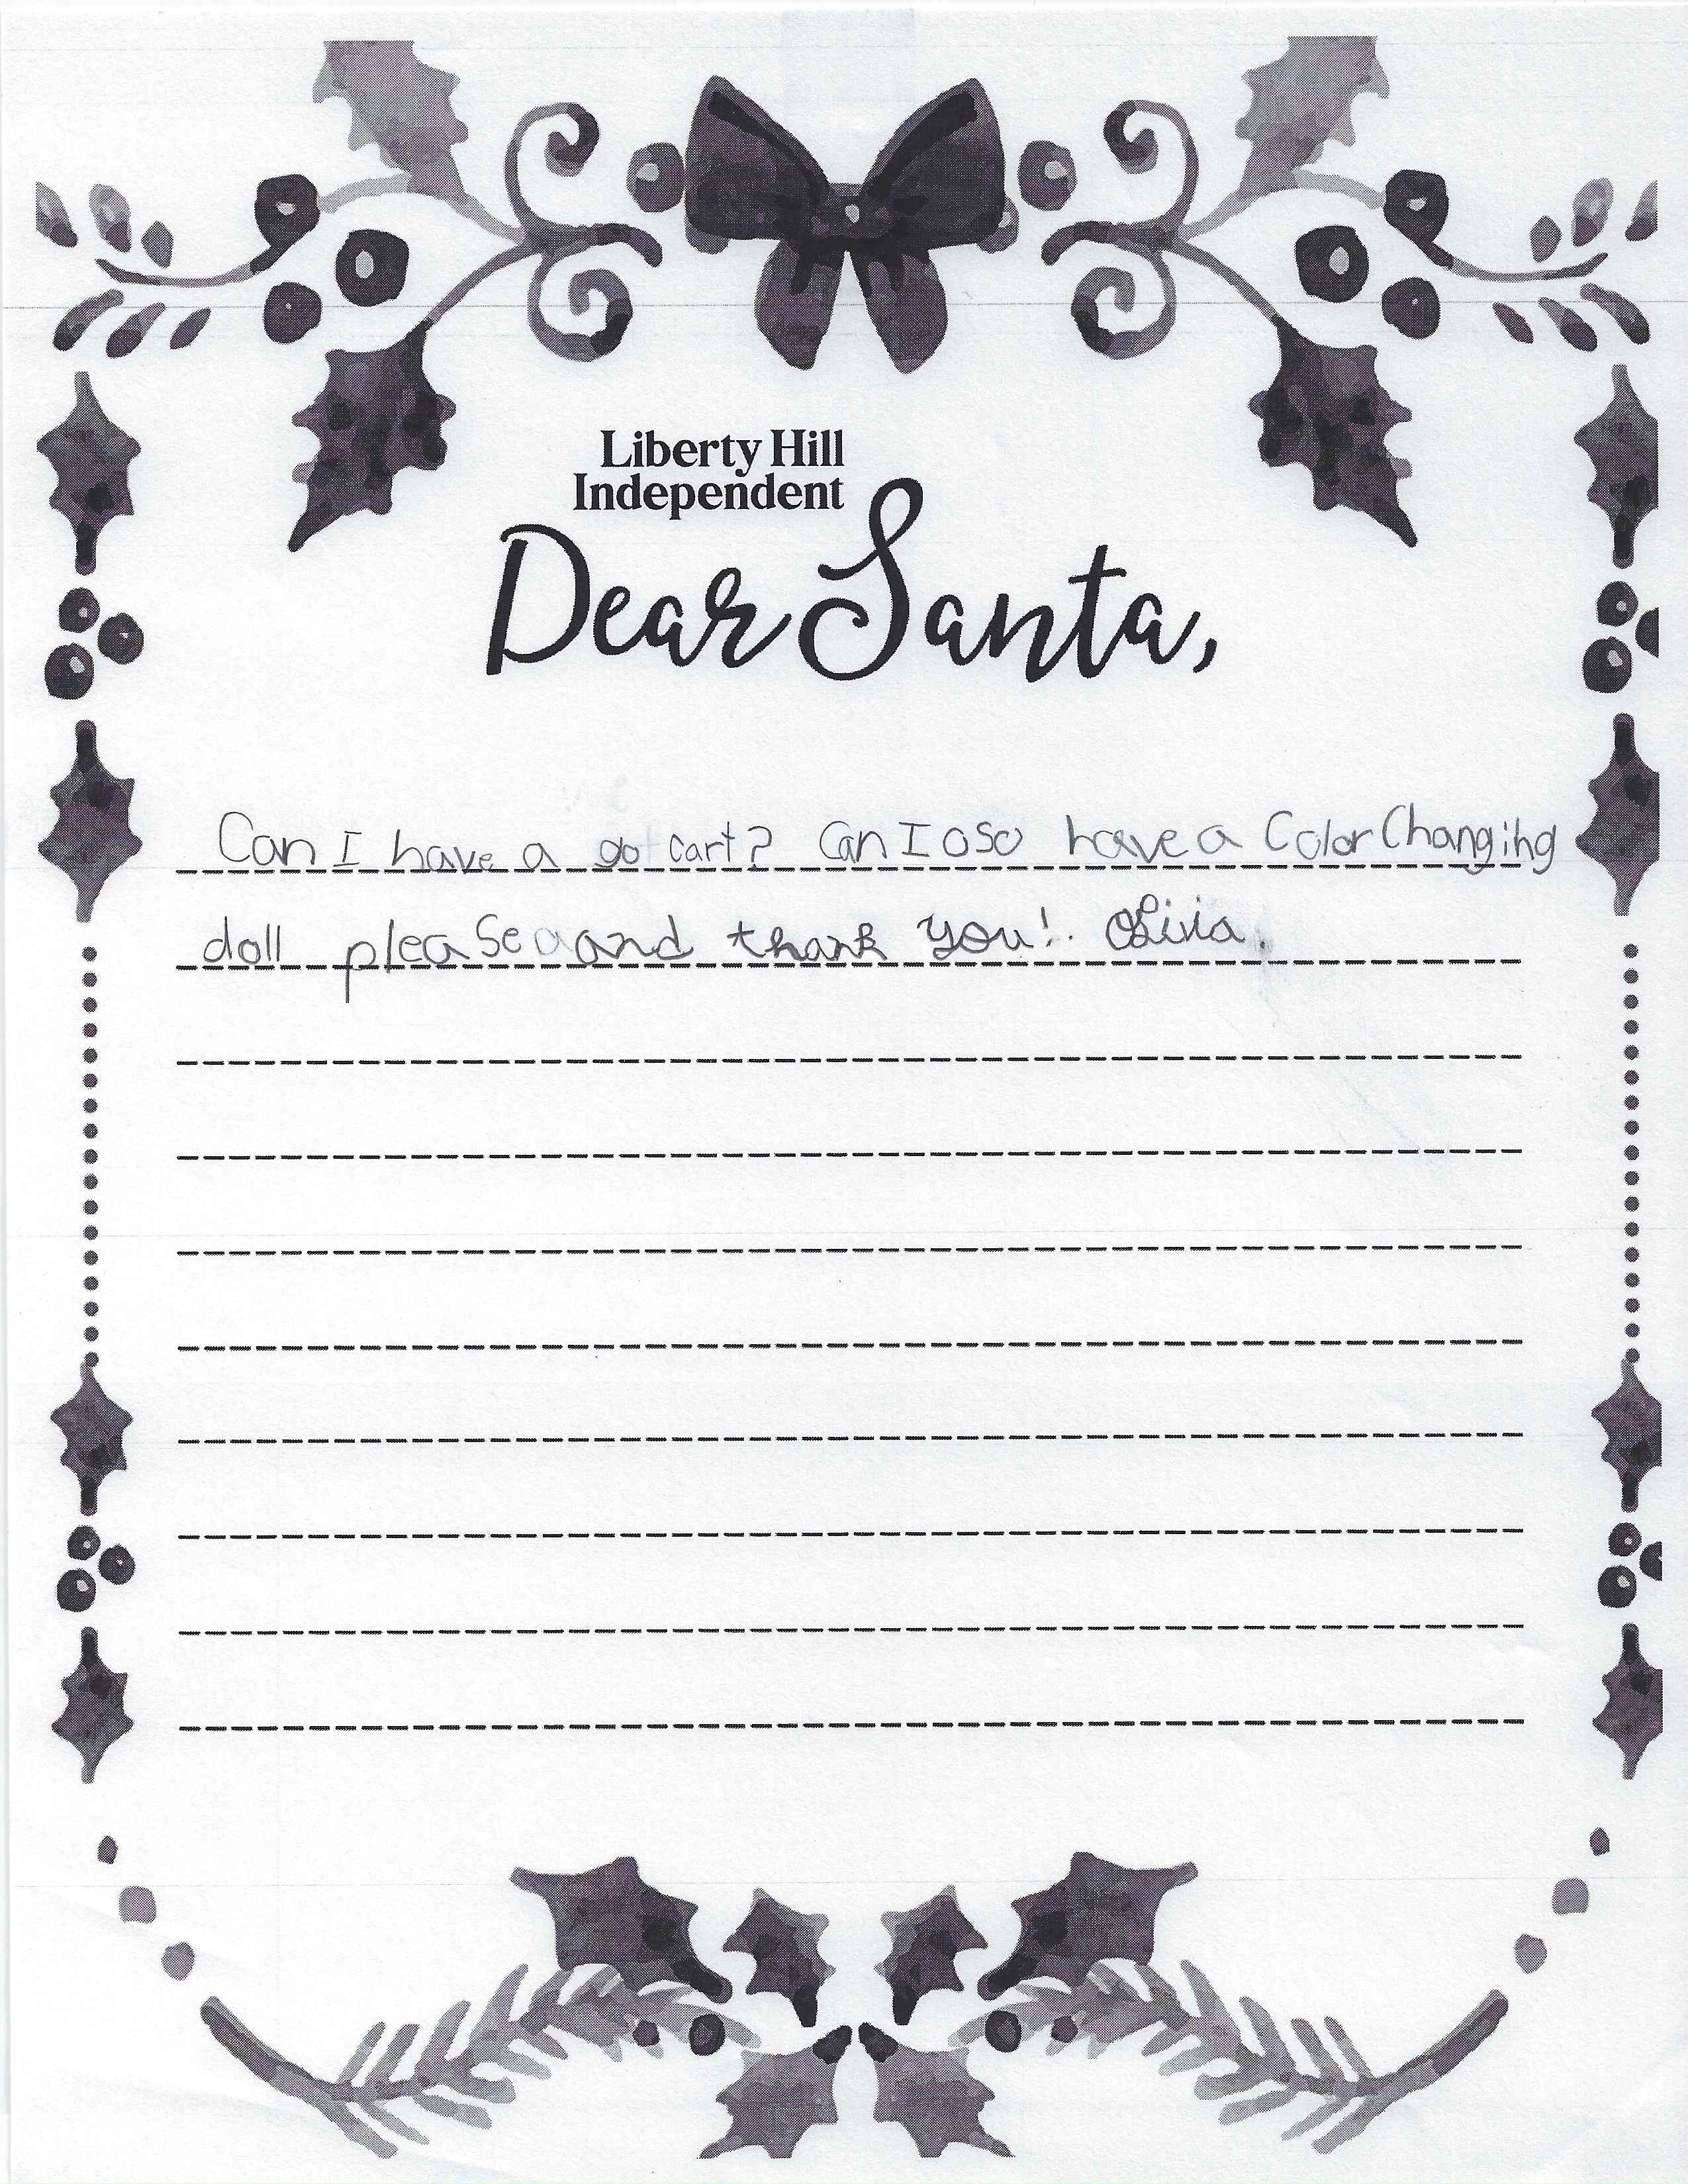 Liberty Hill
Independent
Dear Santa,
Can I have a go cart? Can I oso have a Color Changing
doll please and thank you! Olivia.